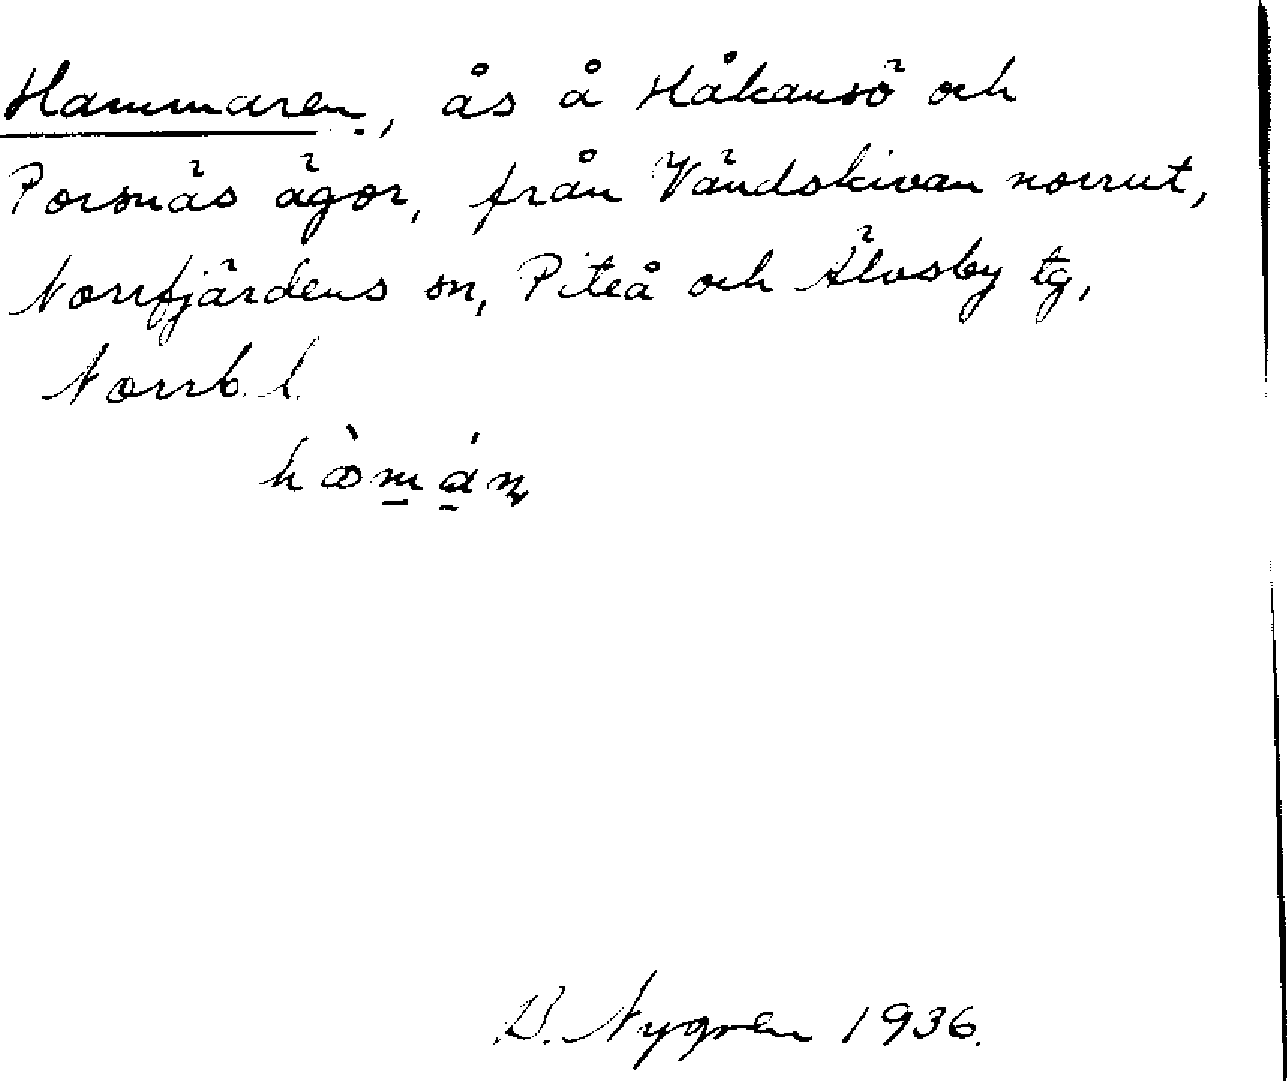 Hammaren, ås å Håkansö och
Porsnäs ägor, från Vändskivan norrut,
Norrfjärdens sn, Piteå och Älvsby tg,
Norrb. l.
Nygren 1936.